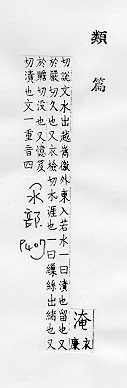 類篇
淹衣廉
切說文水出越嶲徼外東入若水一曰漬也留也又
於嚴切久也又衣檢切水涯也一曰繅絲出緒也又
於贍切没也又憶笈
切漬也文一重音四
(水部
P407)